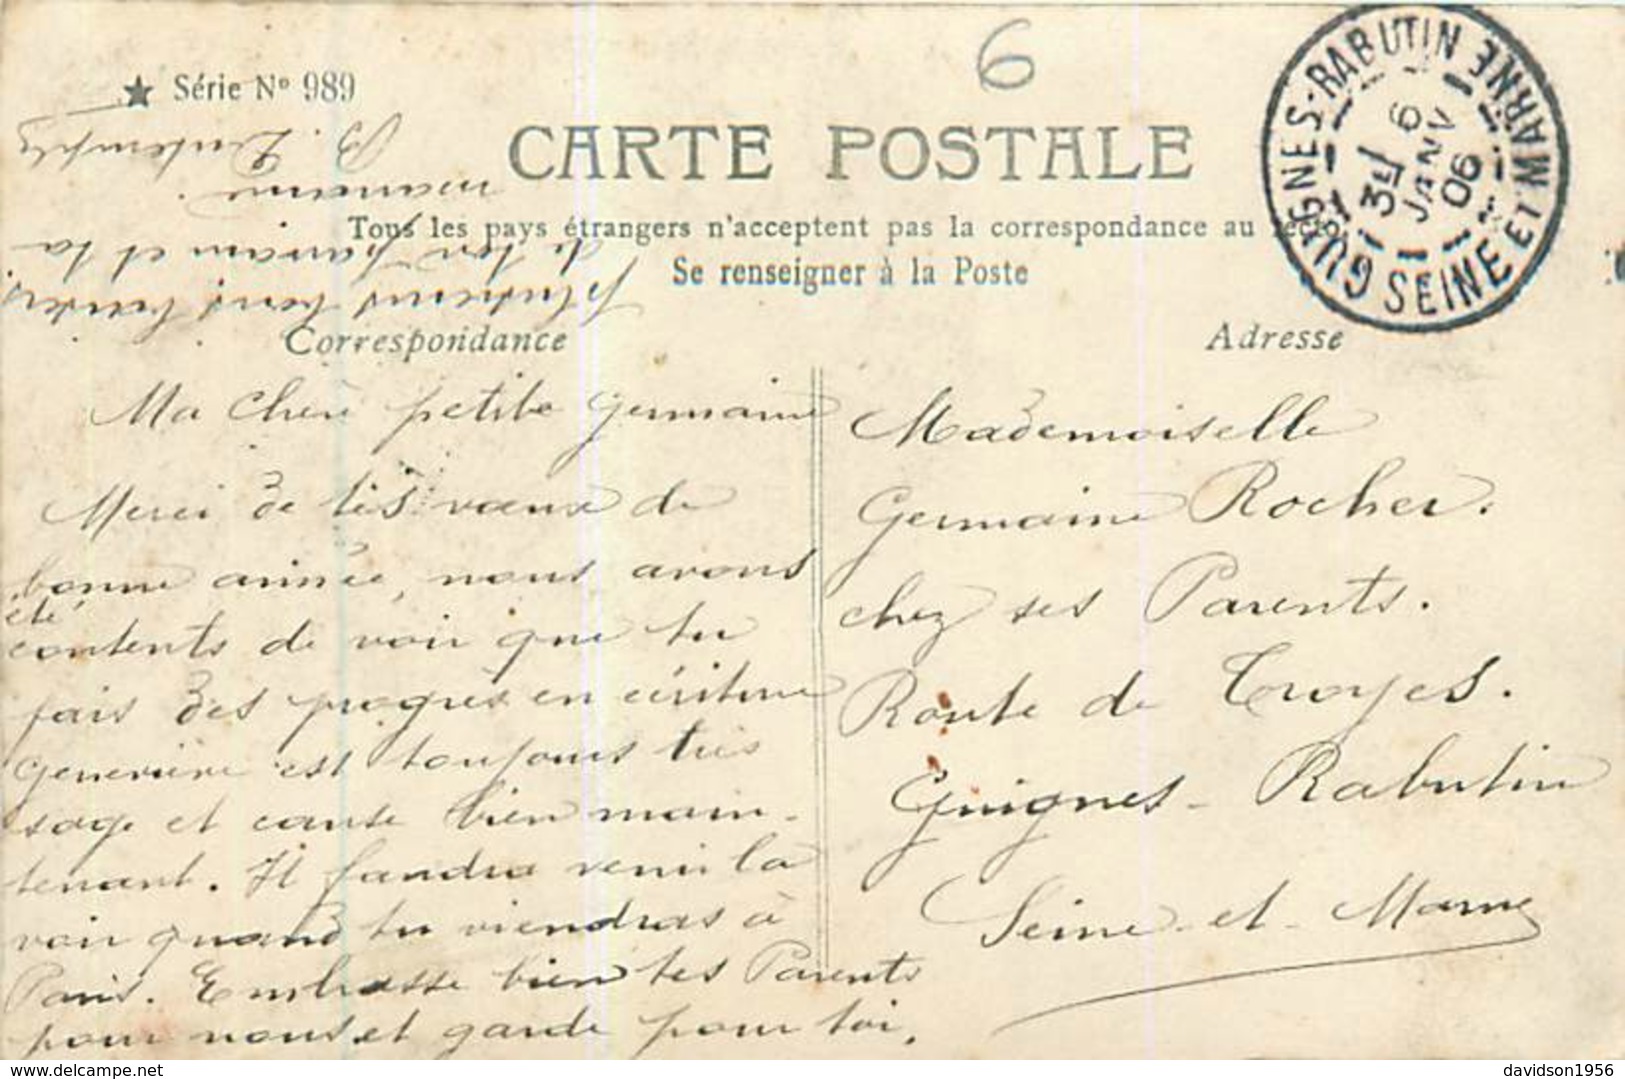 ★ Série Nº 989
6
CARTE POSTALE
Tous les pays étrangers n'acceptent pas la correspondance au recto.
Se renseigner à la Poste
GUIGNES-RABUTIN SEINE ET MARNE
3E
6
JANV
06
Correspondance
Adresse
Ma chère petite Germaine
Merci de tes vœux de
bonne année, nous avons
été
contents de voir que tu
fais des progrès en écriture
Geneviève est toujours très
sage et cause bien main-
tenant. Il faudra venir la
voir quand tu viendras à
Paris. Embrasse bien tes Parents
pour nous et garde pour toi,
plusieurs bons baisers
de ton parrain et ta
marraine.
B.
Mademoiselle
Germaine Rocher.
chez ses Parents.
Route de Troyes.
Guignes-Rabutin
Seine-et-Marne
davidson1956
delcampe.net